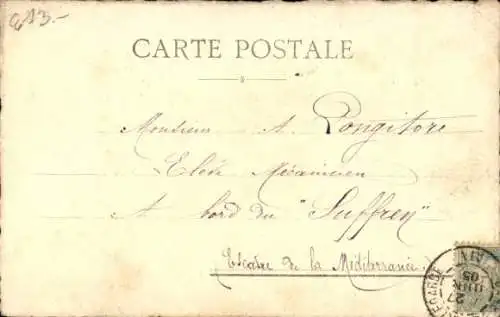 €13.-
CARTE POSTALE
Monsieur A. Longitore
Elève Mécanicien
A bord du "Suffren"
Escadre de la Méditerranée
27
JUIN
05